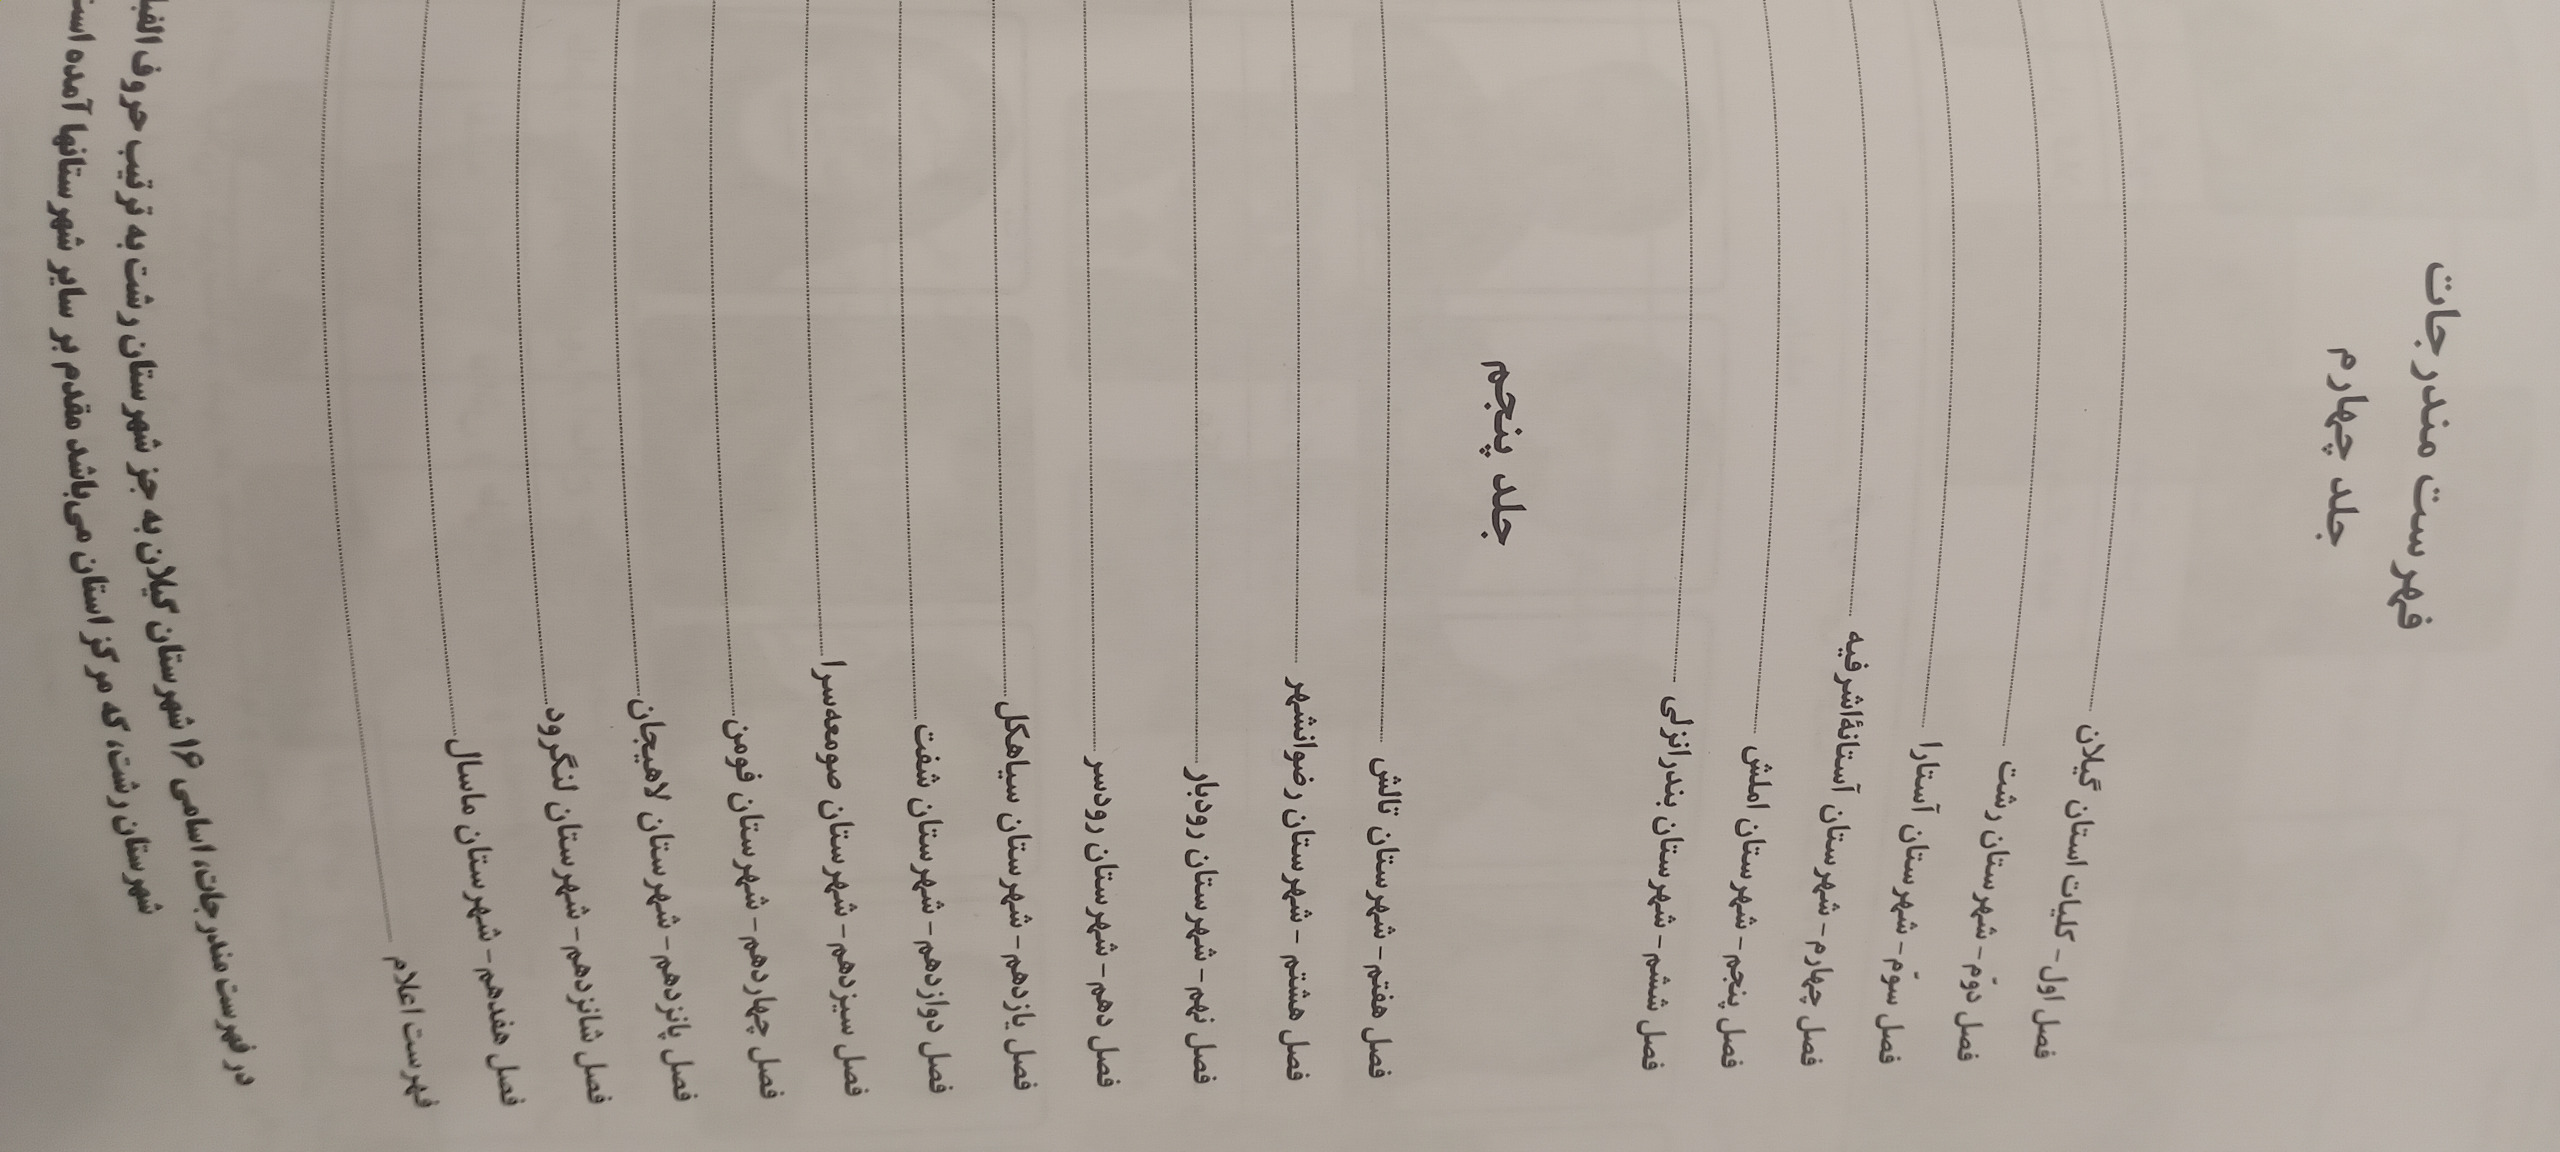 فهرست مندرجات
جلد چهارم
فصل اول - کلیات استان گیلان
فصل دوّم - شهرستان رشت
فصل سوّم - شهرستان آستارا
فصل چهارم - شهرستان آستانهٔ‌اشرفیه
فصل پنجم - شهرستان املش
فصل ششم - شهرستان بندرانزلی
جلد پنجم
فصل هفتم - شهرستان تالش
فصل هشتم - شهرستان رضوانشهر
فصل نهم - شهرستان رودبار
فصل دهم - شهرستان رودسر
فصل یازدهم - شهرستان سیاهکل
فصل دوازدهم - شهرستان شفت
فصل سیزدهم - شهرستان صومعه‌سرا
فصل چهاردهم - شهرستان فومن
فصل پانزدهم - شهرستان لاهیجان
فصل شانزدهم - شهرستان لنگرود
فصل هفدهم - شهرستان ماسال
فهرست اعلام
در فهرست مندرجات، اسامی ۱۶ شهرستان گیلان به جز شهرستان رشت به ترتیب حروف
شهرستان رشت، که مرکز استان می‌باشد مقدم بر سایر شهرستانها آمده